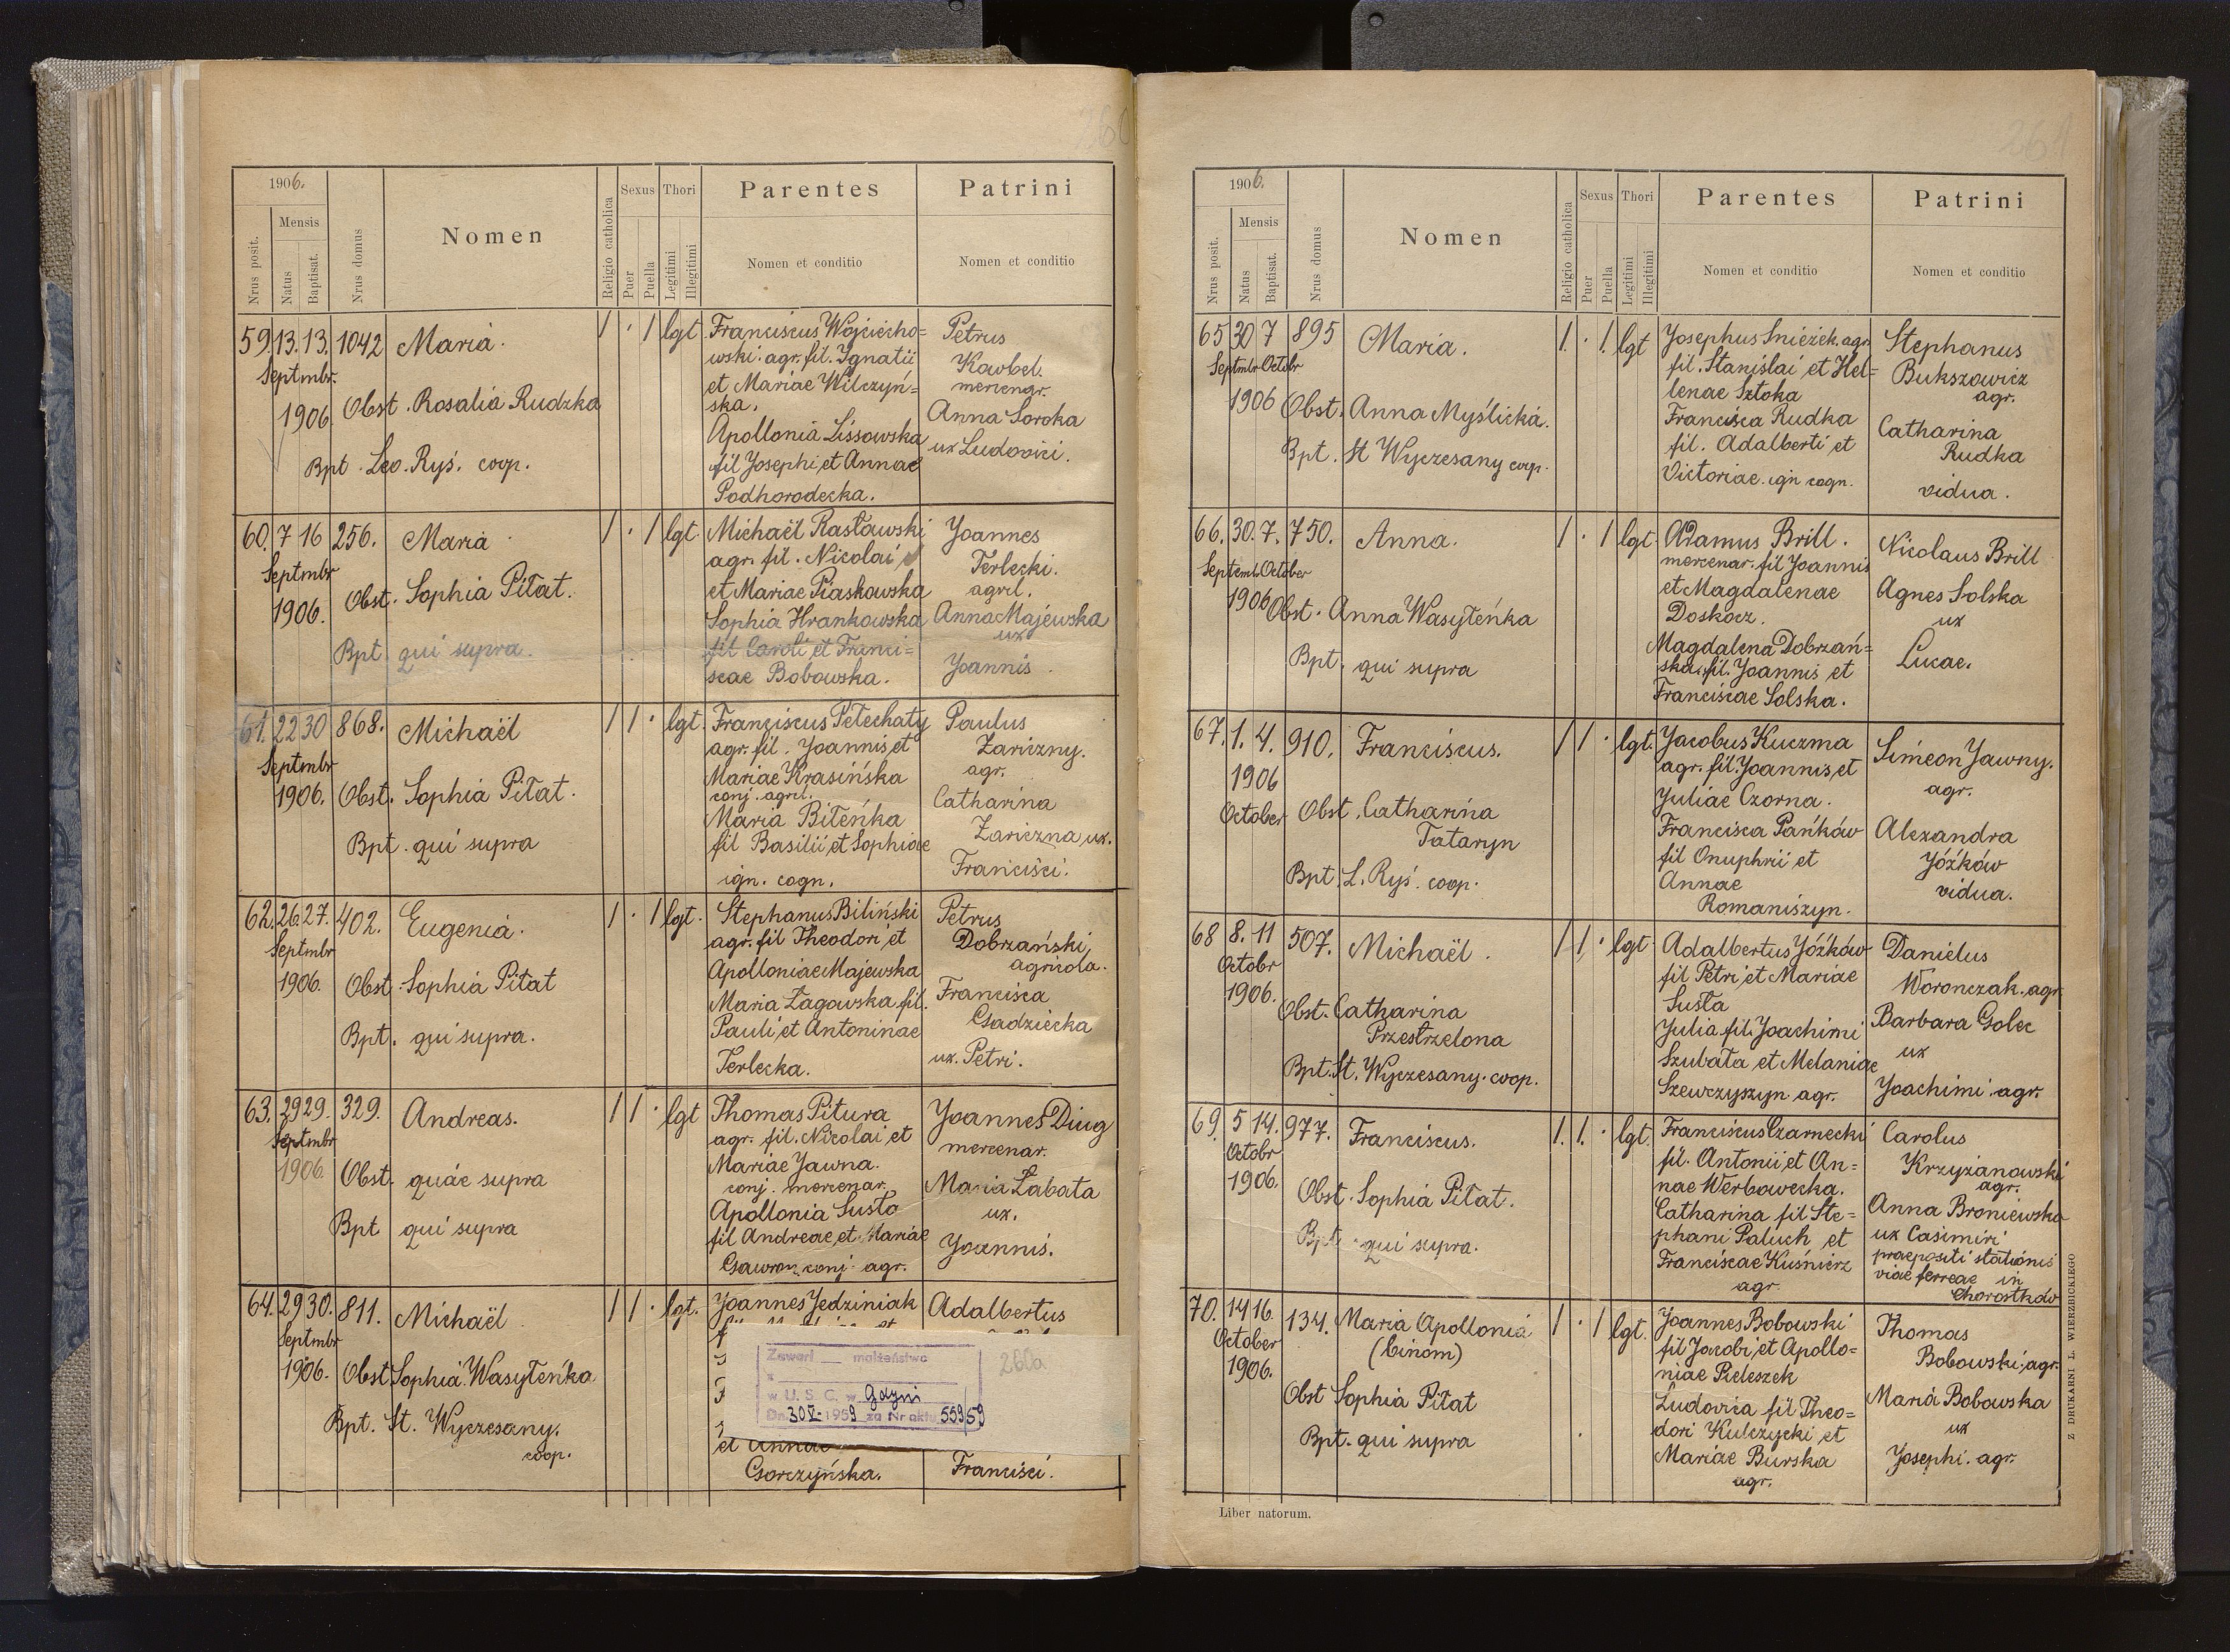 260
1906.
Nrus posit.
Mensis
Natus
Baptisat.
Nrus domus
Nomen
Religio catholica
Sexus
Puer
Puella
Thori
Legitimi
Illegitimi
Parentes
Nomen et conditio
Patrini
Nomen et conditio
59. 13. 13. 1042 Maria. 1 · 1 lgt
Septmbr.
1906
Obst. Rosalia Rudzka
Bpt. Leo. Ryś. coop.
Franciscus Wojciecho=
wski. agr. fil. Ignatii
et Mariae Wilczyń=
ska.
Apollonia Lissowska
fil Josephi et Annae
Podhorodecka.
Petrus
Kowbel.
mercengr.
Anna Soroka
ux Ludovici.
60. 7 16 256. Maria 1 · 1 lgt.
Septmbr
1906.
Obst. Sophia Piłat.
Bpt. qui supra.
Michaël Rasławski
agr. fil. Nicolai
et Mariae Piaskowska
Sophia Hrankowska
fil Caroli et Franci=
scae Bobowska.
Joannes
Terlecki.
agril.
Anna Majewska
ux
Joannis.
61. 22 30 868. Michaël 1 1 · lgt.
Septmbr
1906.
Obst. Sophia Piłat.
Bpt. qui supra
Franciscus Petechaty
agr. fil. Joannis et
Mariae Krasińska
conj. agril.
Maria Biłeńka
fil Basilii et Sophiae
ign. cogn.
Paulus
Zariczny.
agr.
Catharina
Zariczna ux.
Francisci.
62. 26. 27. 402. Eugenia. 1 · 1 lgt.
Septmbr
1906.
Obst. Sophia Piłat
Bpt. qui supra.
Stephanus Biliński
agr. fil Theodori et
Apolloniae Majewska
Maria Łagowska fil.
Pauli et Antoninae
Terlecka.
Petrus
Dobrzański,
agricola.
Francisca
Gadziecka
ux. Petri.
63. 29 29. 329. Andreas. 1 1 · lgt
Septmbr
1906.
Obst. quae supra
Bpt qui supra
Thomas Pitura
agr. fil. Nicolai et
Mariae Jawna.
conj. mercenar.
Apollonia Susła
fil Andreae et Mariae
Gawron conj. agr.
Joannes Diug
mercenar.
Maria Łabata
ux.
Joannis.
64. 29 30. 811. Michaël 1 1 · lgt.
Septmbr
1906.
Obst Sophia Wasyłeńka
Bpt. St. Wyczesany.
coop.
Joannes Jedziniak
Adalbertus
Zawarł ___ małżeństwo
z
w U. S. C. w Gdyni
Dn. 30 V. 1959 za Nr aktu 559/59
260a
et Annae
Gorczyńska.
Francisci.
261
1906.
Nrus posit.
Mensis
Natus
Baptisat.
Nrus domus
Nomen
Religio catholica
Sexus
Puer
Puella
Thori
Legitimi
Illegitimi
Parentes
Nomen et conditio
Patrini
Nomen et conditio
65 30 7 895 Maria. 1. · 1. lgt
Septmbr Octobr
1906
Obst. Anna Myślicka.
Bpt. St Wyczesany coop.
Josephus Snieżek. agr.
fil. Stanislai et Hel=
lenae Sztoka
Francisca Rudka
fil. Adalberti et
Victoriae. ign cogn.
Stephanus
Bukszowicz
agr.
Catharina
Rudka
vidua.
66. 30. 7. 750. Anna. 1 · 1 lgt
Septemb. October
1906
Obst. Anna Wasyłeńka
Bpt. qui supra
Adamus Brill.
mercenar. fil Joannis
et Magdalenae
Doskocz.
Magdalena Dobrzań=
ska. fil. Joannis et
Franciscae Solska.
Nicolaus Brill
Agnes Solska
ux
Lucae.
67. 1. 4. 910. Franciscus. 1 1 · lgt.
1906
October
Obst. Catharina
Tataryn
Bpt. L. Ryś. coop.
Jacobus Kuczma
agr. fil. Joannis et
Juliae Czorna.
Francisca Pańków
fil Onuphrii et
Annae
Romaniszyn.
Simeon Jawny.
agr.
Alexandra
Jóźków
vidua.
68 8. 11 507. Michaël. 1 1 · lgt
Octobr
1906.
Obst. Catharina
Przestrzelona
Bpt. St. Wyczesany. coop.
Adalbertus Jóźków
fil Petri et Mariae
Susła
Julia fil. Joachimi
Szubata et Melaniae
Szewczyszyn agr.
Danielus
Woronczak. agr.
Barbara Golec
ux
Joachimi. agr.
69. 5 14. 977. Franciscus. 1. 1. · lgt.
Octobr
1906.
Obst. Sophia Piłat.
Bpt. qui supra.
Franciscus Czarnecki
fil. Antonii et An=
nae Werbowecka.
Catharina fil Ste=
phani Paluch et
Franciscae Kuśnierz
agr.
Carolus
Krzyżanowski
agr.
Anna Broniewska
ux Casimiri
praepositi stationis
viae ferreae in
Chorostków
70. 14 16. 134. Maria Apollonia 1 · 1 lgt.
(binom)
October
1906.
Obst Sophia Piłat
Bpt. qui supra
Joannes Bobowski
fil Jacobi et Apollo=
niae Pieleszek
Ludovica fil Theo=
dori Kulczycki et
Mariae Burska
agr.
Thomas
Bobowski, agr.
Maria Bobowska
ux
Josephi. agr.
Liber natorum.
Z DRUKARNI L. WIERZBICKIEGO